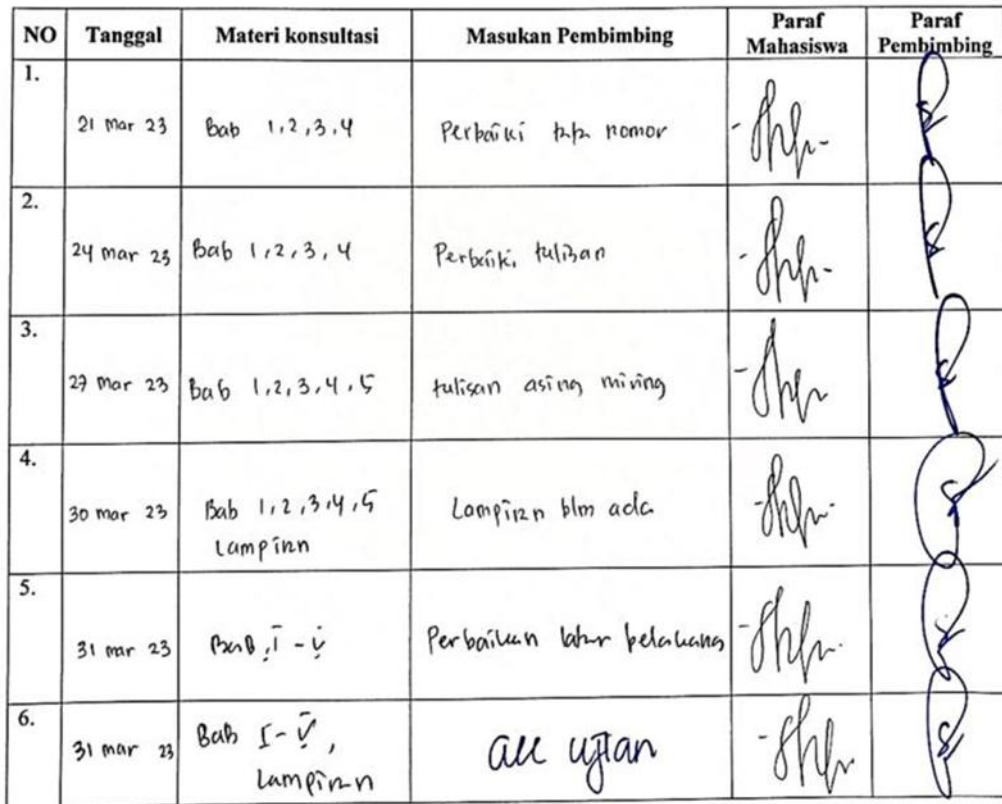 NO Tanggal Materi konsultasi Masukan Pembimbing Paraf Mahasiswa Paraf Pembimbing
1. 21 Mar 23 Bab 1,2,3,4 Perbaiki tata nomor
2. 24 mar 23 Bab 1,2,3,4 Perbaiki tulisan
3. 27 mar 23 Bab 1,2,3,4,5 tulisan asing miring
4. 30 mar 23 Bab 1,2,3,4,5 Lampiran blm ada
Lampiran
5. 31 mar 23 Bab I-V Perbaikan latar belakang
6. 31 mar 23 Bab I-V, acc ujian
Lampiran